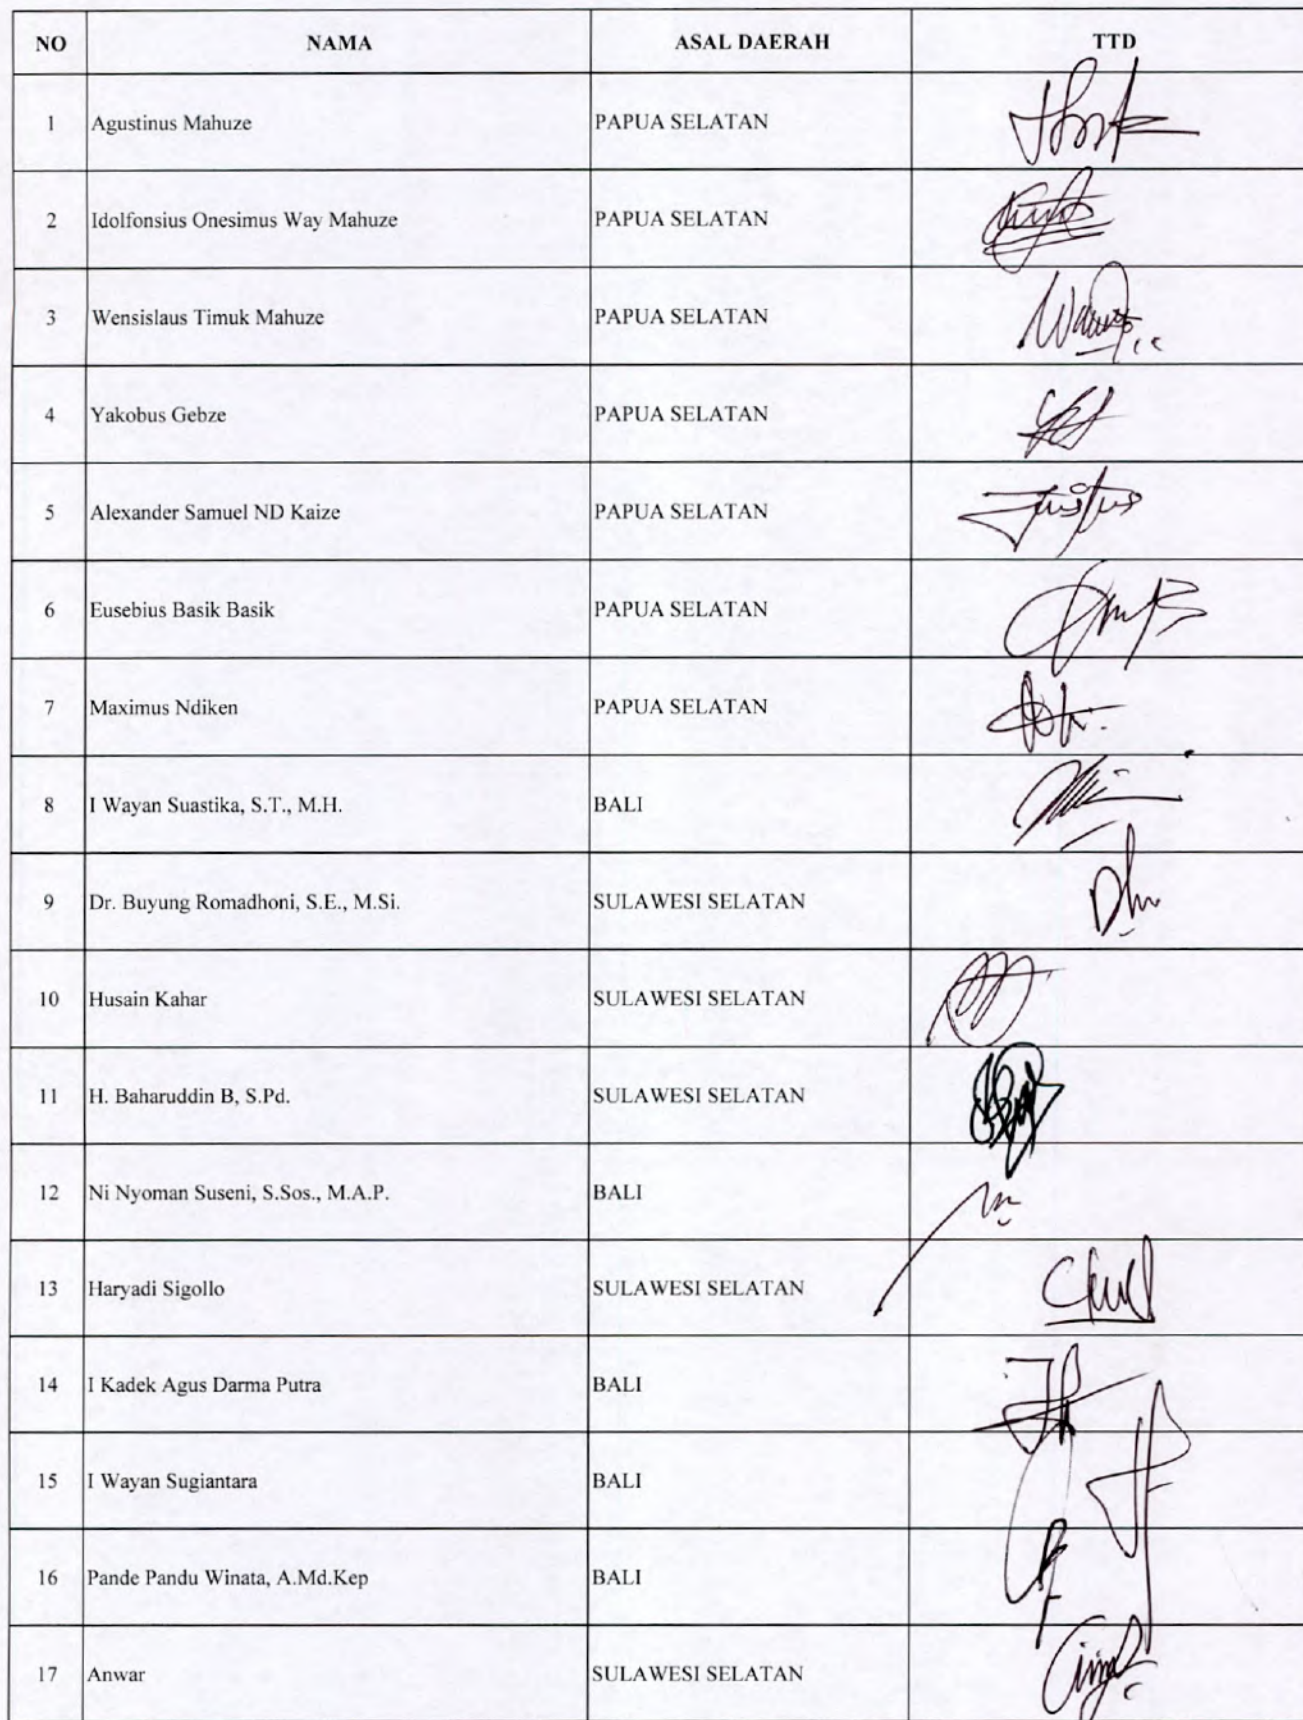 NO NAMA ASAL DAERAH TTD
1 Agustinus Mahuze PAPUA SELATAN
2 Idolfonsius Onesimus Way Mahuze PAPUA SELATAN
3 Wensislaus Timuk Mahuze PAPUA SELATAN
4 Yakobus Gebze PAPUA SELATAN
5 Alexander Samuel ND Kaize PAPUA SELATAN
6 Eusebius Basik Basik PAPUA SELATAN
7 Maximus Ndiken PAPUA SELATAN
8 I Wayan Suastika, S.T., M.H. BALI
9 Dr. Buyung Romadhoni, S.E., M.Si. SULAWESI SELATAN
10 Husain Kahar SULAWESI SELATAN
11 H. Baharuddin B, S.Pd. SULAWESI SELATAN
12 Ni Nyoman Suseni, S.Sos., M.A.P. BALI
13 Haryadi Sigollo SULAWESI SELATAN
14 I Kadek Agus Darma Putra BALI
15 I Wayan Sugiantara BALI
16 Pande Pandu Winata, A.Md.Kep BALI
17 Anwar SULAWESI SELATAN